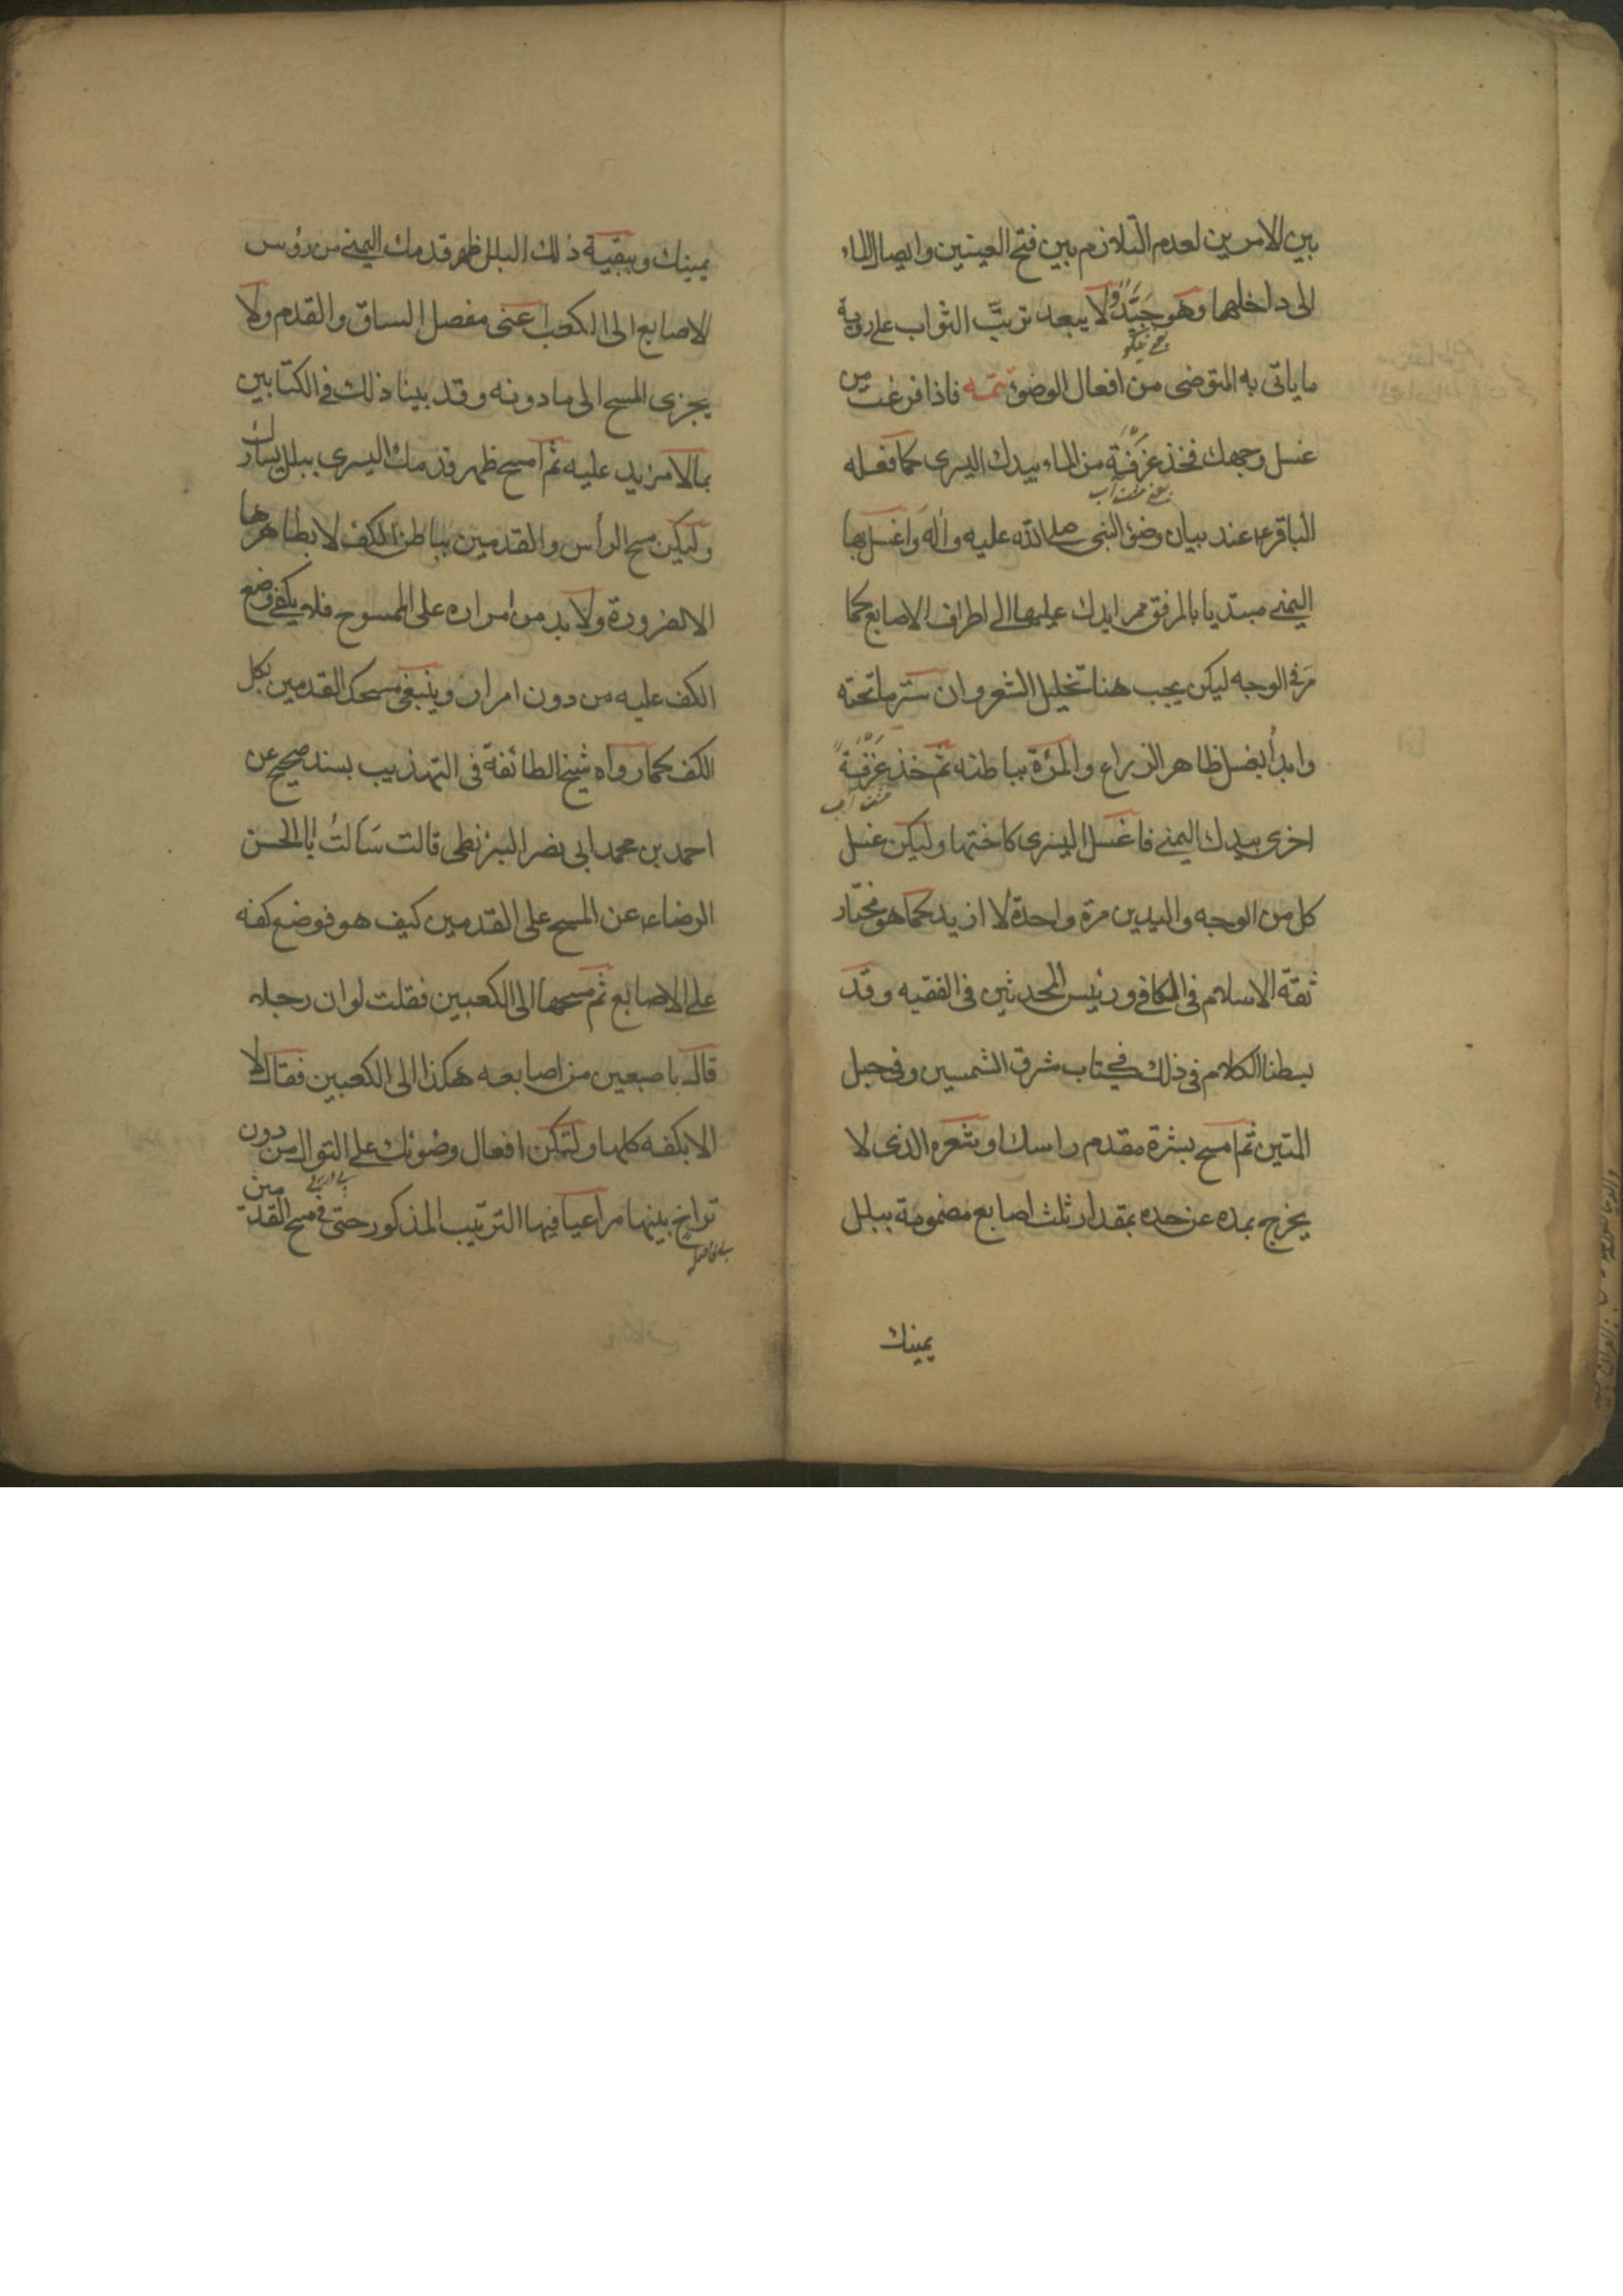 بين الامرين لعدم التلازم بين فتح العينين وايصال الماء
الى داخلهما وهو جَيّدٌ ولا يبعد ترتّب الثواب على روية
يعنی نیکو
ما ياتى به المتوضى من افعال الوضوء تتمه فاذا فرغت من
غسل وجهك فخذ غَرْفَةً من الماء بيدك اليسرى كما فعله
يعنی مشت آب
الباقر ع عند بيان وضوء النبى صلى الله عليه واله واغسل بها
اليمنى مبتديا بالمرفق ممرا يدك عليها الى اطراف الاصابع كما
مَر فى الوجه ليكن يجب هنا تخليل الشعر وان ستر ما تحته
وابدأ بغسل ظاهر الذراع والمرْءة بباطنه ثم خذ غَرْفَةً
مشت آب
اخرى بيدك اليمنى فاغسل اليسرى كاختها وليكن غسل
كل من الوجه واليدين مرة واحدة لا ازيد كما هو مختار
ثقة الاسلام فى الكافى ورئيس المحدثين فى الفقيه وقد
بسطنا الكلام فى ذلك فى كتاب مشرق الشمسين وفى حبل
المتين ثم امسح بشرة مقدم راسك او شعره الذى لا
يخرج بمده عن حده بمقدار ثلث اصابع مضمومة ببلل
يمينك
يمينك وببقية ذلك البلل ظهر قدمك اليمنى من رؤس
الاصابع الى الكعب اعنى مفصل الساق والقدم ولا
يجزى المسح الى ما دونه وقد بينا ذلك فى الكتابين
بما لا مزيد عليه ثم امسح ظهر قدمك اليسرى ببلل يسارك
وليكن مسح الرأس والقدمين بباطن الكف لا بظاهرها
الا لضرورة ولا بد من امراره على الممسوح فلا يكفى وضع
الكف عليه من دون امرار وينبغى مسحك القدمين بكل
الكف كما رواه شيخ الطائفة فى التهذيب بسند صحيح عن
احمد بن محمد ابى نصر البزنطى قالت سَاَلتُ ابا الحسن
الرضا ع عن المسح على القدمين كيف هو فوضع كفه
على الاصابع ثم مسحها الى الكعبين فقلت لو ان رجلا
قال باصبعين من اصابعه هكذا الى الكعبين فقال لا
الا بكفه كلها ولتكن افعال وضوئك على التوالى من دون
تراخ بينها مراعيا فيها الترتيب المذكور حتى فى مسح القدمين